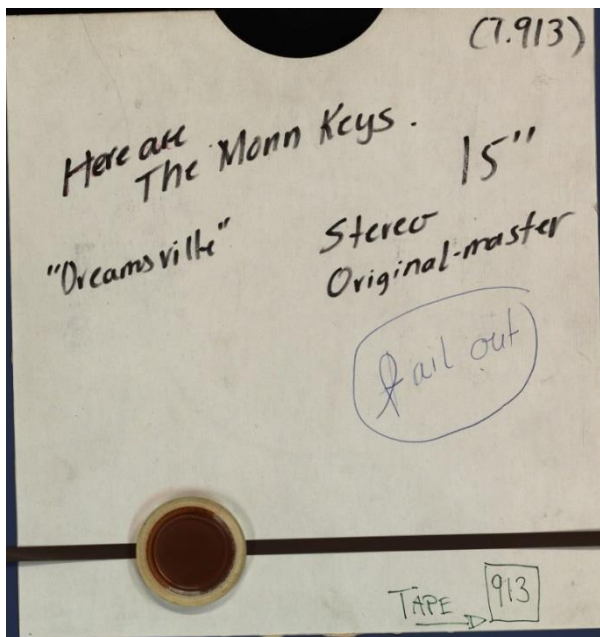 (7.913)
Here are
The Monn Keys.
15"
"Dreamsville"
Stereo
Original-master
tail out
TAPE 913